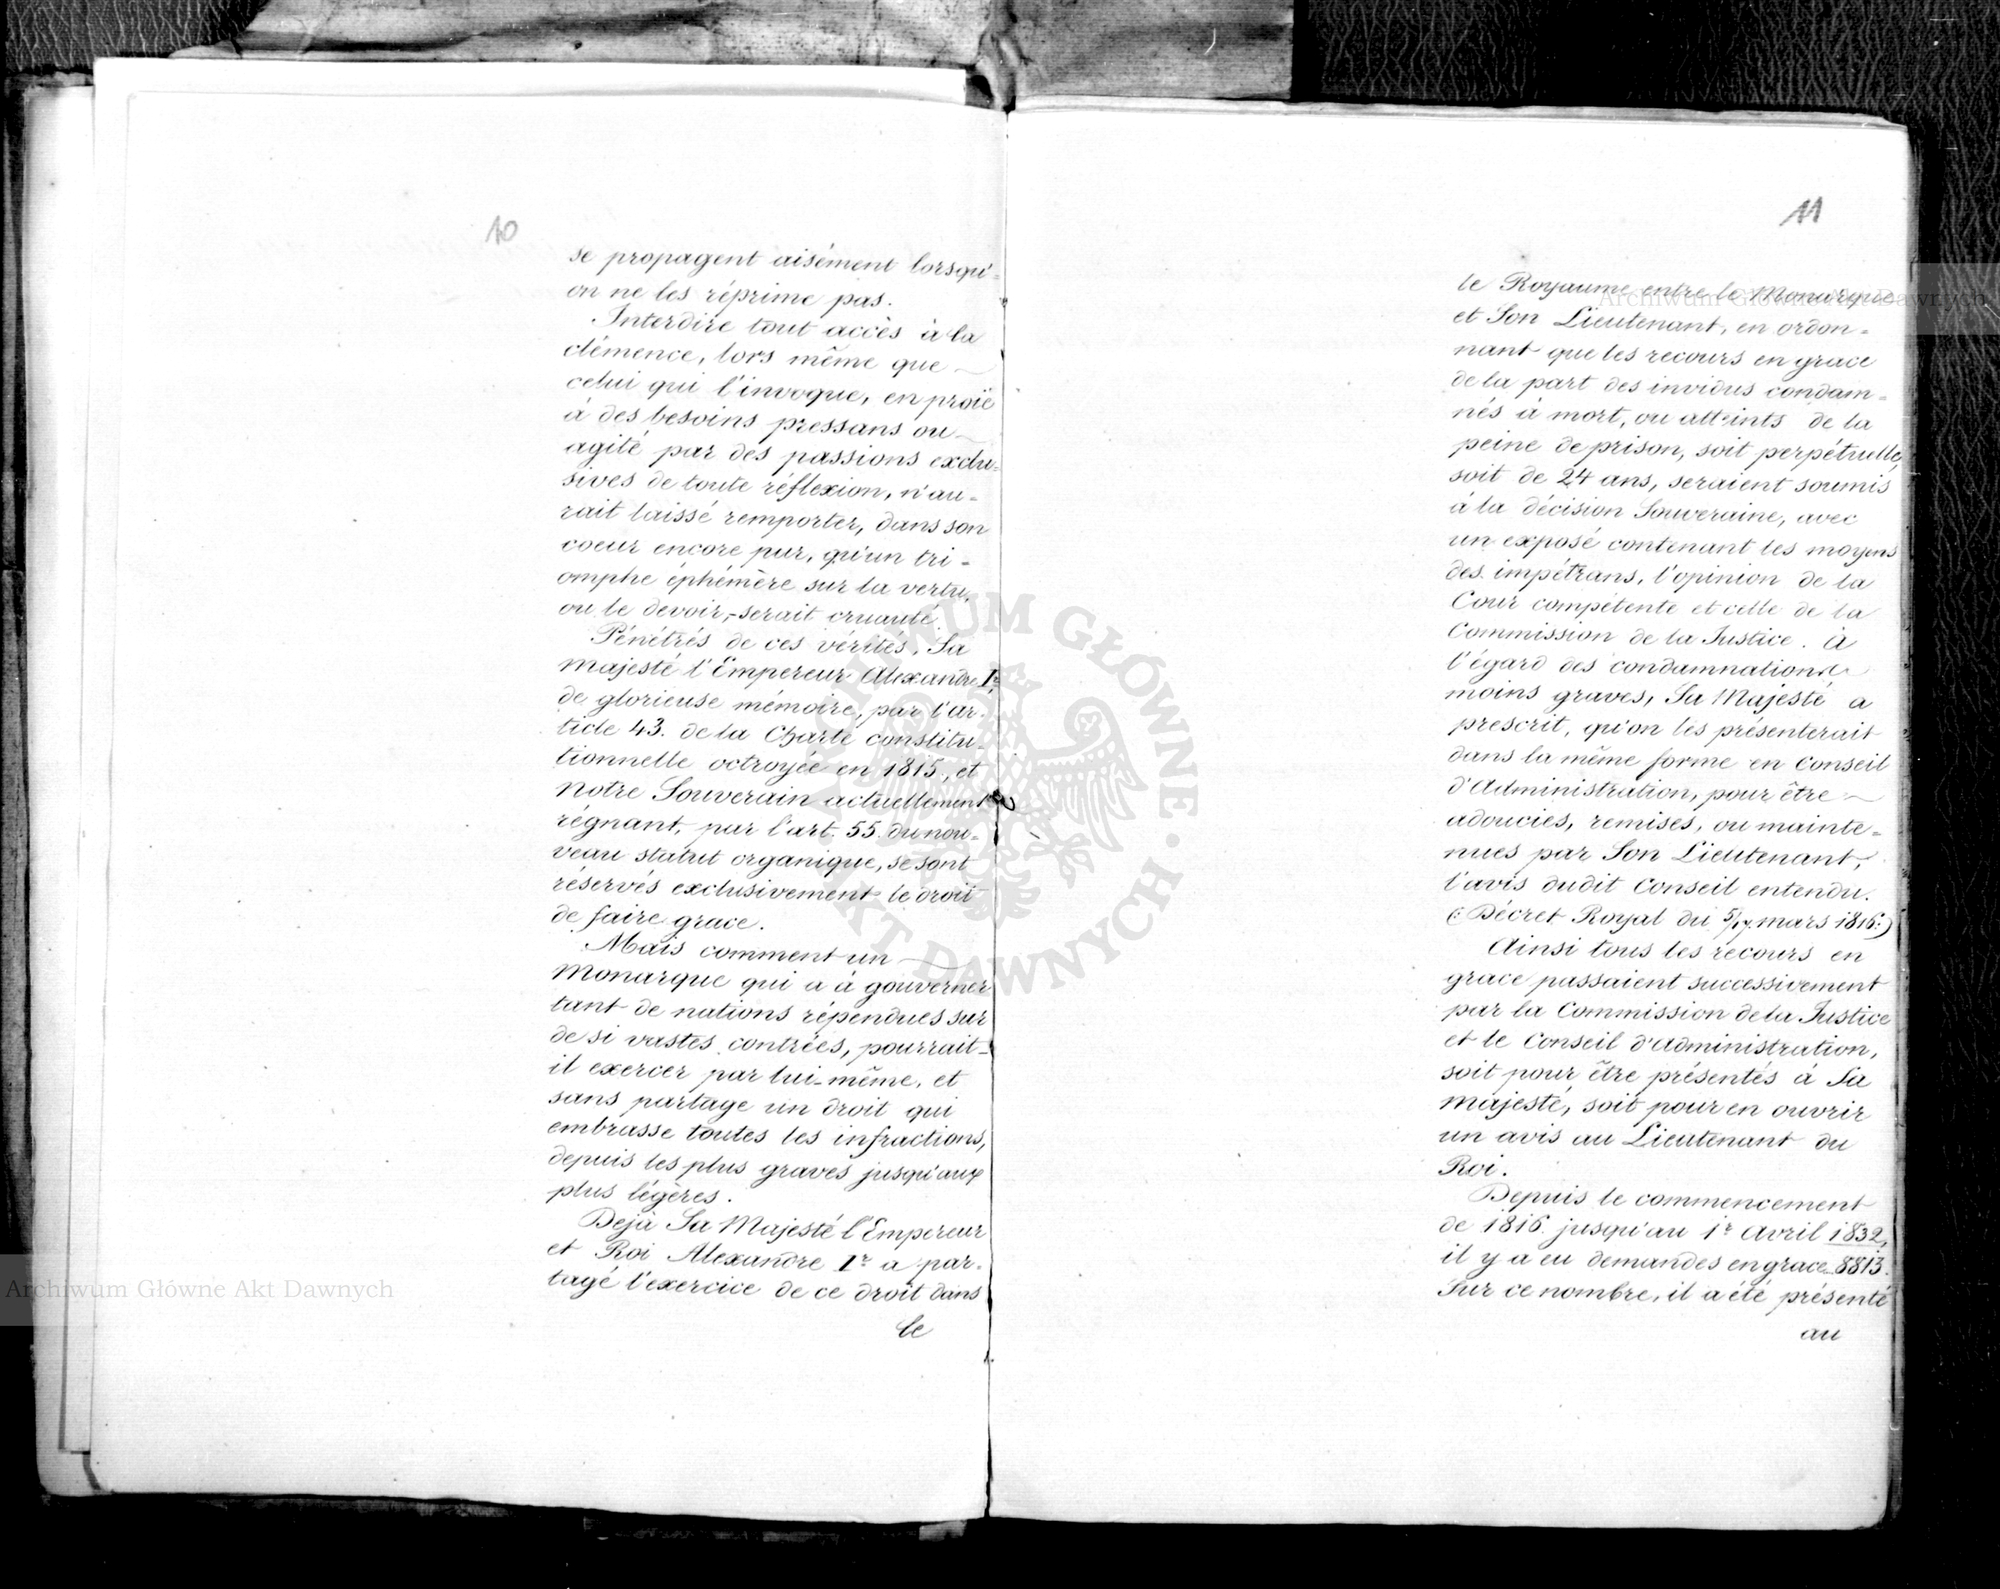 10
se propagent aisément lorsqu'=
on ne les réprime pas.
Interdire tout accès à la
clémence, lors même que
celui qui l'invoque, en proïe
à des besoins pressans ou
agité par des passions exclu=
sives de toute réflexion, n'au=
rait laissé remporter, dans son
coeur encore pur, qu'un tri=
omphe éphémère sur la vertu,
ou le devoir, serait cruauté.
Pénétrés de ces vérités, Sa
Majesté l'Empereur Alexandre Ir,
de glorieuse mémoire, par l'ar=
ticle 43. de la Charte constitu=
tionnelle octroyée en 1815, et
Notre Souverain actuellement
régnant, par l'art. 55. du nou=
veau statut organique, se sont
réservés exclusivement le droit
de faire grace.
Mais comment un
Monarque qui a à gouverner
tant de nations répendues sur
de si vastes contrées, pourrait-
il exercer par lui-même, et
sans partage un droit qui
embrasse toutes les infractions,
depuis les plus graves jusqu'aux
plus légères.
Dejà Sa Majesté l'Empereur
et Roi Alexandre Ir a par=
tagé l'exercice de ce droit dans
le
11
le Royaume entre le Monarque
et Son Lieutenant, en ordon=
nant que les recours en grace
de la part des invidus condam=
nés à mort, ou atteints de la
peine de prison, soit perpétuelle,
soit de 24 ans, seraient soumis
à la décision Souveraine, avec
un exposé contenant les moyens
des impétrans, l'opinion de la
Cour compétente et celle de la
Commission de la Justice. à
l'égard des condamnations
moins graves, Sa Majesté a
prescrit, qu'on les présenterait
dans la même forme en Conseil
d'Administration, pour être
adoucies, remises, ou mainte=
nues par Son Lieutenant,
l'avis dudit Conseil entendu.
(: Décret Royal du 5/17 mars 1816:)
Ainsi tous les recours en
grace passaient successivement
par la Commission de la Justice
et le Conseil d'administration,
soit pour être présentés à Sa
Majesté, soit pour en ouvrir
un avis au Lieutenant du
Roi.
Depuis le commencement
de 1816. jusqu'au 1r Avril 1832,
il y a eu demandes en grace 8813.
Sur ce nombre, il a été présenté
au
Archiwum Główne Akt Dawnych
Archiwum Główne Akt Dawnych
ARCHIWUM GŁÓWNE · AKT DAWNYCH ·